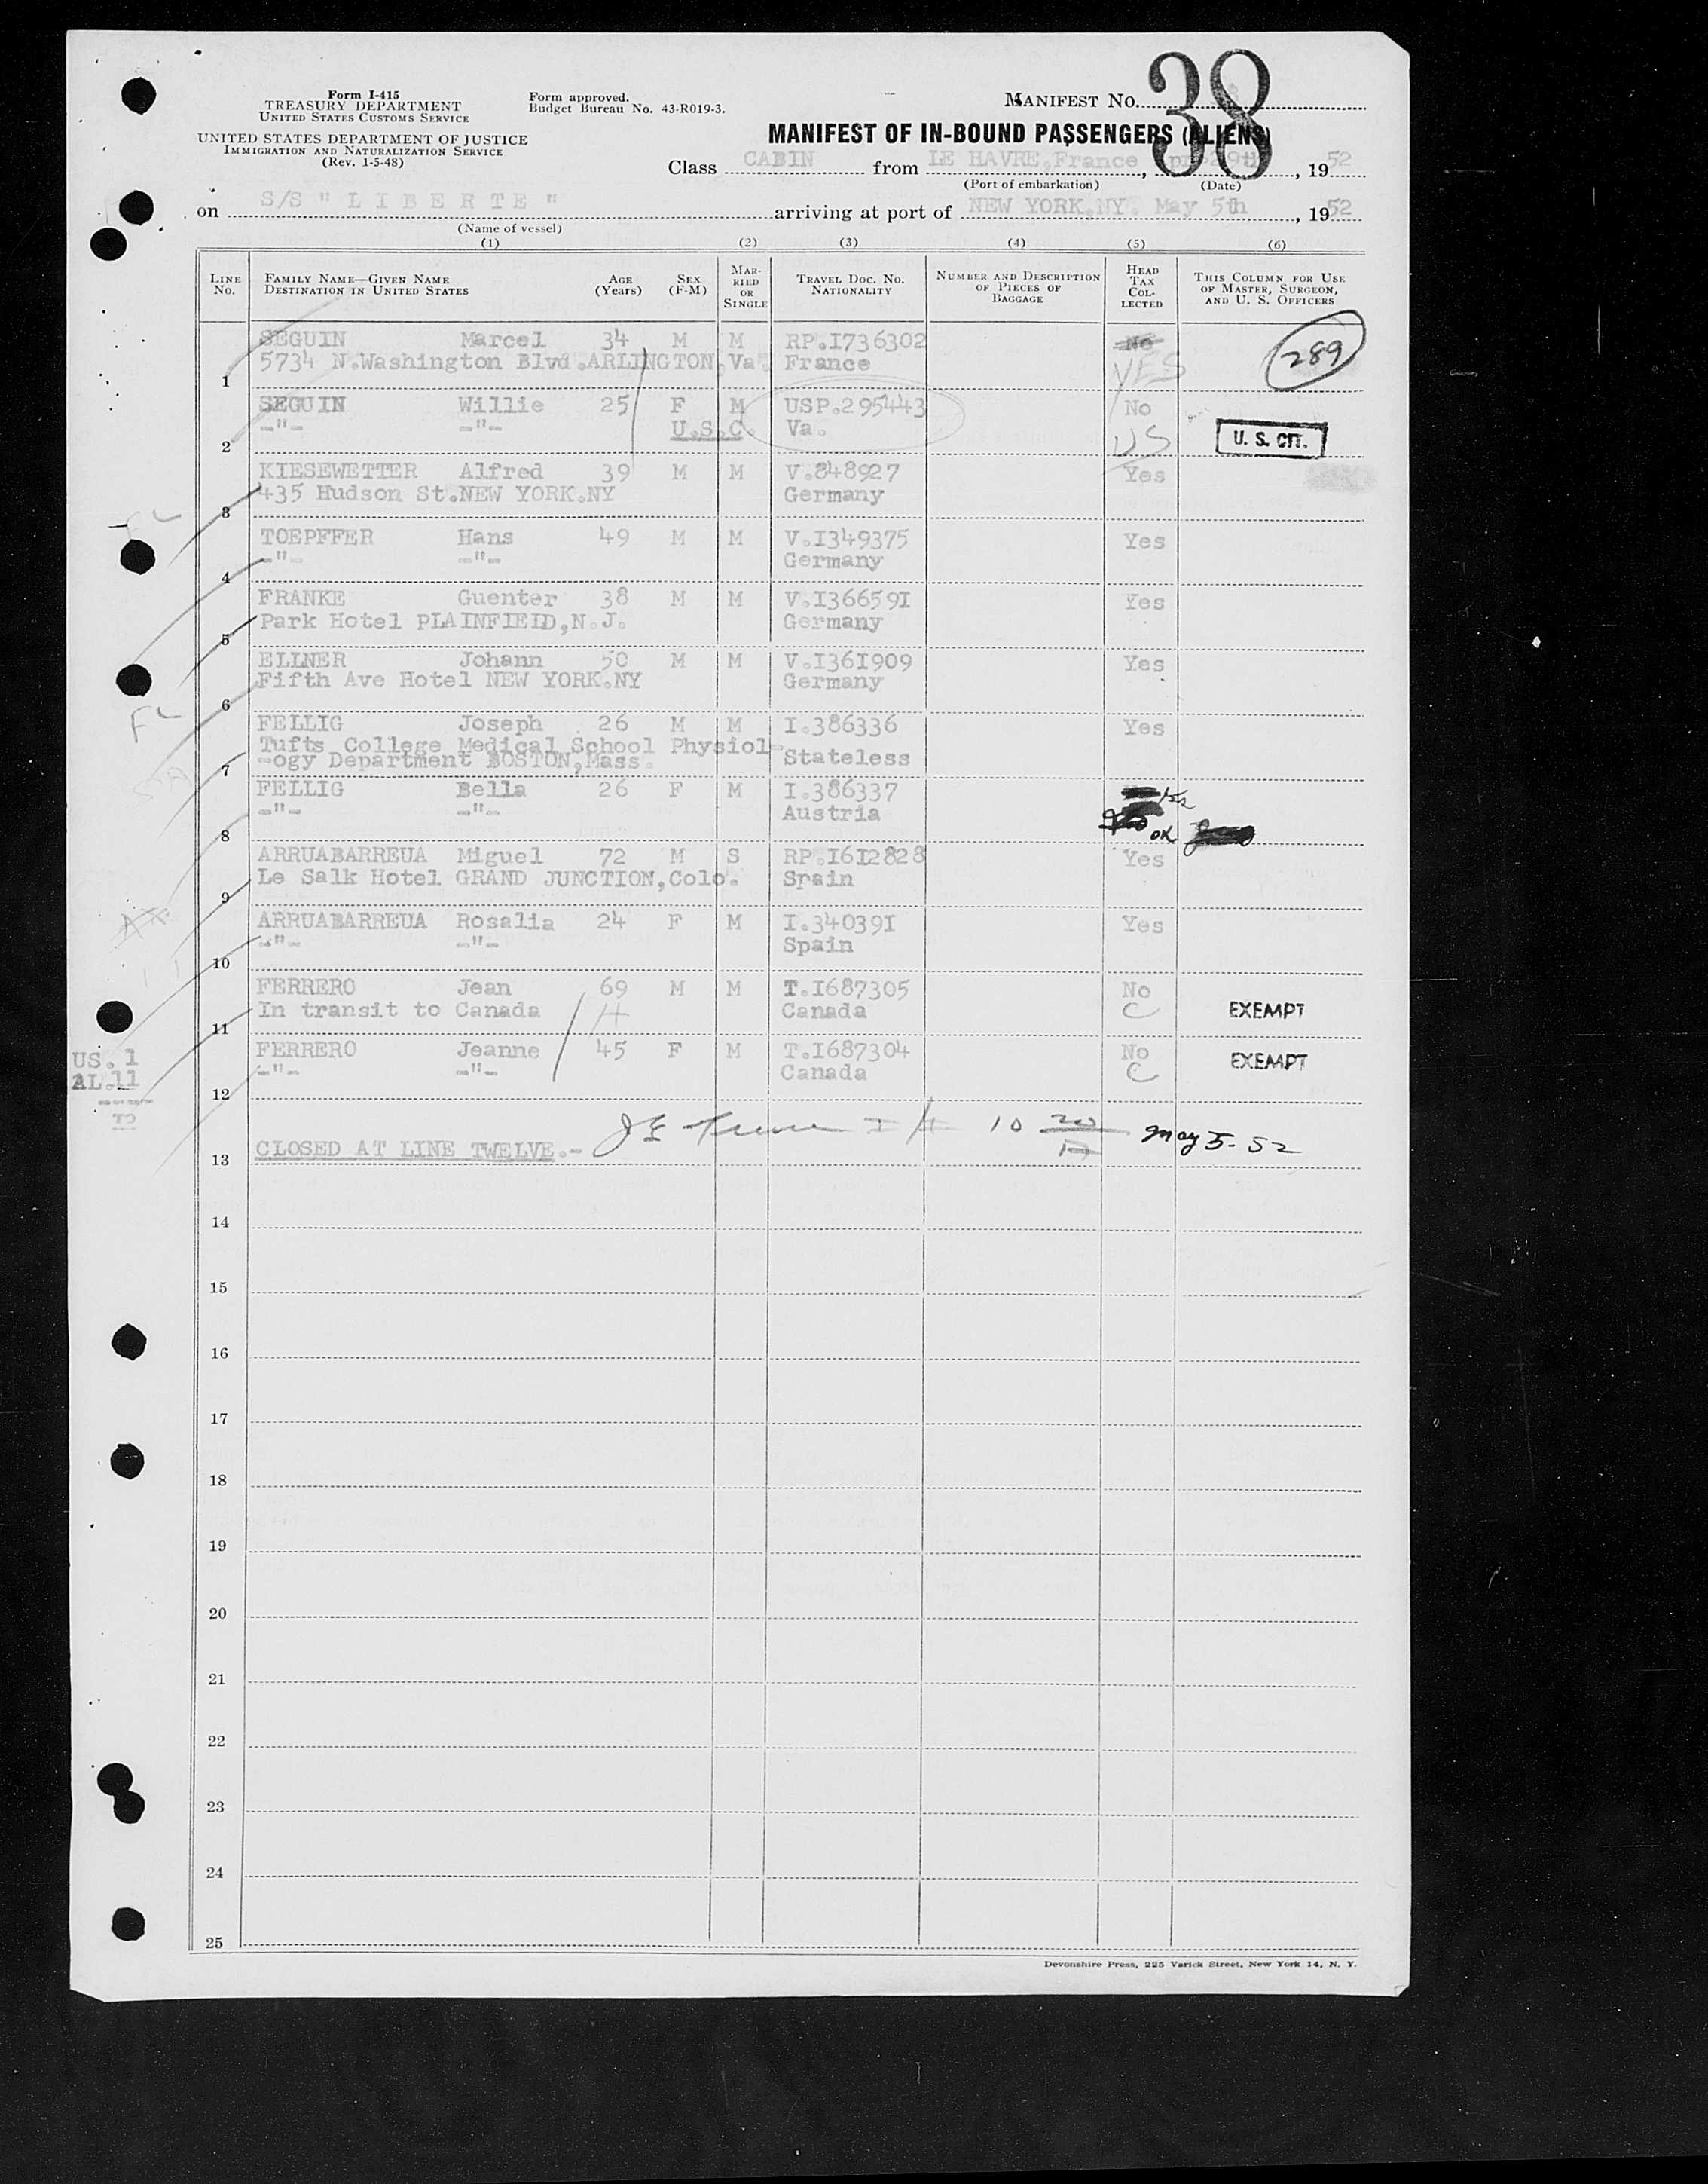 Form I-415
TREASURY DEPARTMENT
UNITED STATES CUSTOMS SERVICE
UNITED STATES DEPARTMENT OF JUSTICE
IMMIGRATION AND NATURALIZATION SERVICE
(Rev. 1-5-48)
Form approved.
Budget Bureau No. 43-R019-3.
MANIFEST No. 38
MANIFEST OF IN-BOUND PASSENGERS (ALIENS)
Class CABIN from LE HAVRE.France, 29th, 1952
(Port of embarkation) (Date)
on S/S " L I B E R T E " arriving at port of NEW YORK.NY. May 5th, 1952
(Name of vessel)
(1) (2) (3) (4) (5) (6)
LINE No. FAMILY NAME—GIVEN NAME DESTINATION IN UNITED STATES AGE (Years) SEX (F-M) MARRIED OR SINGLE TRAVEL DOC. NO. NATIONALITY NUMBER AND DESCRIPTION OF PIECES OF BAGGAGE HEAD TAX COLLECTED THIS COLUMN FOR USE OF MASTER, SURGEON, AND U. S. OFFICERS
SEGUIN Marcel 34 M M RP.I736302 No 289
5734 N.Washington Blvd.ARLINGTON.Va. France YES
1
SEGUIN Willie 25 F M USP.295443 No
-"- -"- U.S.C. Va. US U. S. CIT.
2
KIESEWETTER Alfred 39 M M V.848927 Yes
435 Hudson St.NEW YORK.NY Germany
3
TOEPFFER Hans 49 M M V.I349375 Yes
-"- -"- Germany
4
FRANKE Guenter 38 M M V.I36659I Yes
Park Hotel PLAINFIEID,N.J. Germany
5
ELLNER Johann 50 M M V.I36I909 Yes
Fifth Ave Hotel NEW YORK.NY Germany
6
FELLIG Joseph 26 M M I.386336 Yes
Tufts College Medical School Physiol-
-ogy Department BOSTON,Mass. Stateless
7
FELLIG Bella 26 F M I.386337
-"- -"- Austria OK
8
ARRUABARREUA Miguel 72 M S RP.I6I2828 Yes
Le Salk Hotel GRAND JUNCTION,Colo. Spain
9
ARRUABARREUA Rosalia 24 F M I.34039I Yes
-"- -"- Spain
10
FERRERO Jean 69 M M T.I687305 No
In transit to Canada Canada C EXEMPT
11
FERRERO Jeanne 45 F M T.I687304 No
-"- -"- Canada C EXEMPT
12
US. 1
AL.11
10 20 May 5-52
CLOSED AT LINE TWELVE.-
13
14
15
16
17
18
19
20
21
22
23
24
25
Devonshire Press, 225 Varick Street, New York 14, N. Y.